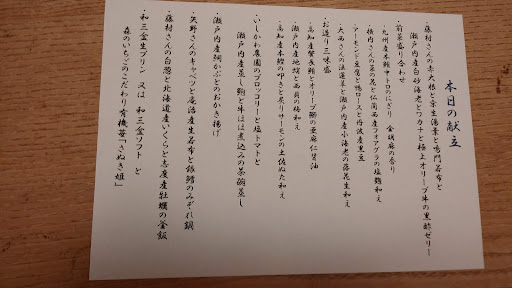 本日の献立
・藤村さんの赤大根と奈生湯葉と鳴門若布と
瀬戸内産白砂海老とワカナと極上オリーブ牛の黒酢ゼリー
・前菜盛り合わせ
九州産本鮪中トロのにぎり 金胡麻の香り
横内さんの菜の花と仏蘭西産フォアグラの塩麹和え
アーモンド豆腐と鴨ロースと丹波産黒豆
大西さんの法蓮草と瀬戸内産小海老の落花生和え
・お造り三味盛
高知産蟹長鮪とオリーブ鰤の亜麻仁醤油
瀬戸内産地蛸と西貝の梅和え
高知産本鰹の叩きと炙りサーモンの土佐ぬた和え
・いしかわ農園のブロッコリーと塩トマトと
瀬戸内産蒸し鮑と牛ほほ煮込みの茶碗蒸し
・瀬戸内産鯛かぶとのおかき揚げ
・矢野さんのキャベツと庵治産生若布と銀鱈のみぞれ鍋
・藤村さんの白葱と北海道産いくらと志度産牡蠣の釜飯
・和三盆生プリン 又は 和三盆ソフト と
森のいちごのこだわり有機苺「さぬき姫」